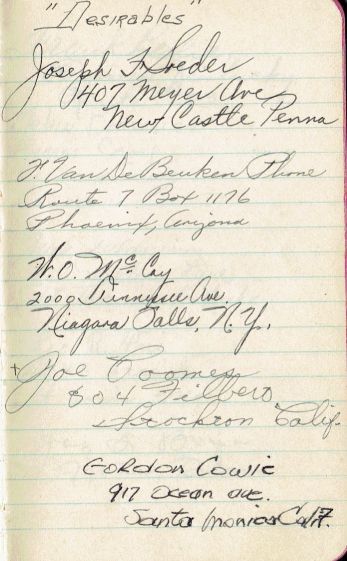 "Desirables"
Joseph F. Soeder
407 Meyer Ave
New Castle Penna
F. Van De Beuken Phone
Route 7 Box 1176
Phoenix, Arizona
W.O. McCay
2000 Tennessee Ave.
Niagara Falls, N.Y.
Joe Coomes
804 Filbero
Stockton Calif.
Gordon Cowie
917 Ocean ave.
Santa Monica Calif.